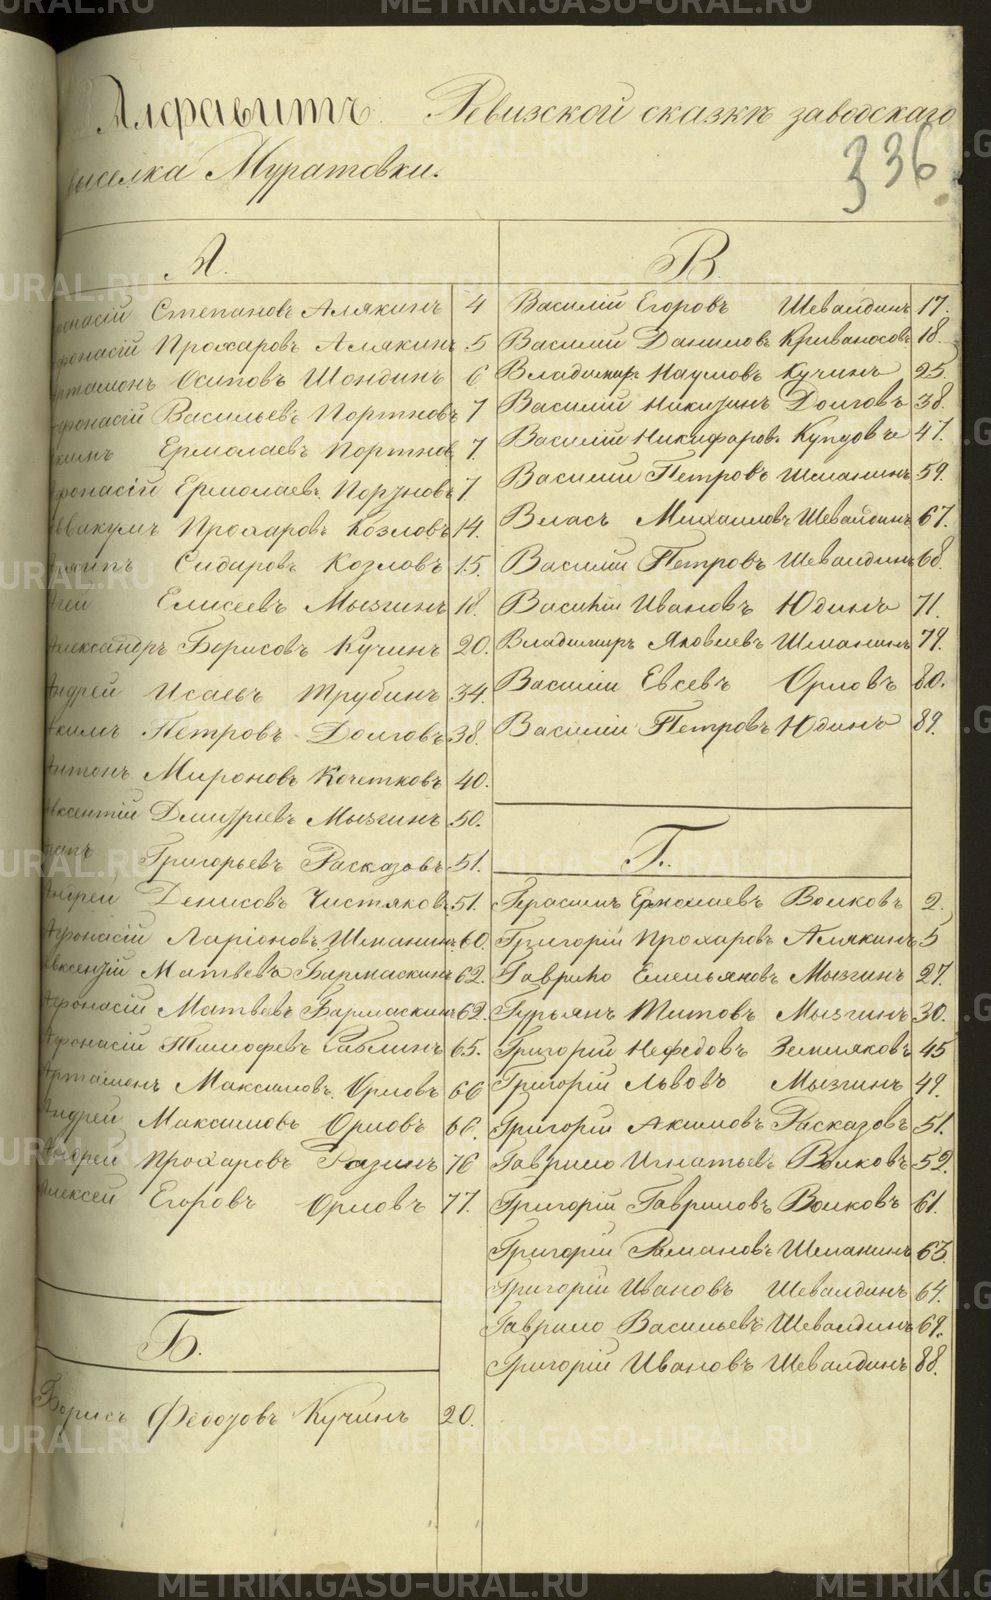 Алфавитъ. Ревизской сказкѣ заводскаго
выселка Муратовки.
336
А.
Афонасій Степановъ Алякинъ 4
Афонасій Прохаровъ Алякинъ 5
Артамонъ Осиповъ Шондинъ 6
Афонасій Васильевъ Портновъ 7
Ермолаевъ Портновъ 7.
Афонасій Ермолаевъ Портновъ 7
Аввакумъ Прохаровъ Козловъ 14.
Сидаровъ Козловъ 15.
Агеи Елисеевъ Мызгинъ 18.
Александръ Борисовъ Кучинъ 20.
Андрей Исаевъ Трубинъ 34.
Акимъ Петровъ Долговъ 38.
Антонъ Мироновъ Кочетковъ 40.
Авксентій Дмитріевъ Мызгинъ 50.
Григорьевъ Расказовъ 51.
Андреи Денисовъ Чистяковъ 51.
Афонасій Ларіоновъ Шманинъ 60.
Авксентій Матвѣевъ Бармаскинъ 62.
Афонасій Матвѣевъ Бармаскинъ 62.
Афонасій Тимофевъ Саблинъ 65.
Артамонъ Максимовъ Орловъ 66
Андрей Максимовъ Орловъ 66.
Андреи Прохаровъ Разинъ 76
Алексей Егоровъ Орловъ 77.
Б.
Борисъ Федотовъ Кучинъ 20.
В.
Василій Егоровъ Шевалдинъ 17.
Василій Даниловъ Кривоносовъ 18.
Владимиръ Наумовъ Кучинъ 25.
Василий Никитинъ Долговъ 38.
Василій Никифаровъ Купцовъ 47.
Василий Петровъ Шманинъ 59.
Власъ Михаиловъ Шевалдинъ 67.
Василий Петровъ Шевалдинъ 68.
Василій Ивановъ Юдинъ 71.
Владимиръ Яковлевъ Шманинъ 79.
Василии Евсевъ Орловъ 80.
Василій Петровъ Юдинъ 89.
Г.
Герасимъ Ермолаевъ Волковъ 2.
Григорій Прохаровъ Алякинъ 5
Гаврило Емельяновъ Мызгинъ 27.
Гурьянъ Титовъ Мызгинъ 30.
Григорій Нефедовъ Земляковъ 45
Григорій Львовъ Мызгинъ 49.
Григорій Акимовъ Расказовъ 51.
Гаврило Игнатьевъ Волковъ 52.
Григорій Гавриловъ Волковъ 61.
Григорій Рамановъ Шманинъ 63.
Григорій Ивановъ Шевалдинъ 64.
Гаврило Васильевъ Шевалдинъ 69.
Григорій Ивановъ Шевалдинъ 88.
METRIKI.GASO-URAL.RU